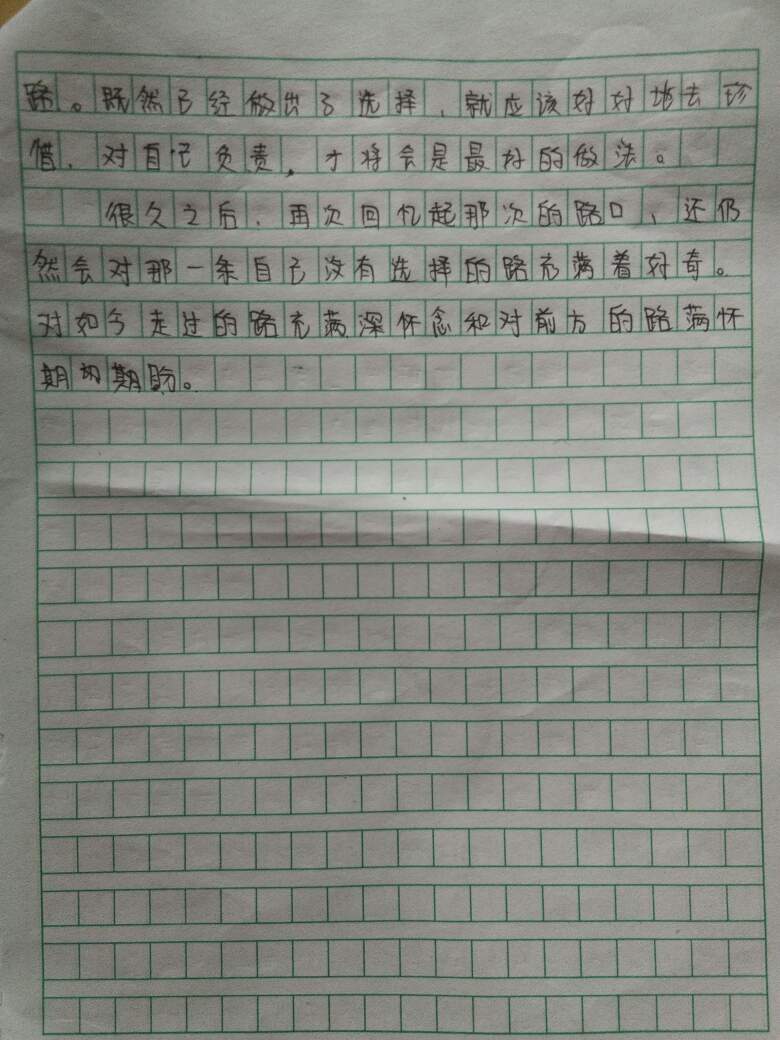 路。既然已经做出了选择，就应该好好地去珍
惜，对自己负责，才将会是最好的做法。
很久之后，再次回忆起那次的路口，还仍
然会对那一条自己没有选择的路充满着好奇。
对如今走过的路充满深怀念和对前方的路满怀
期切期盼。